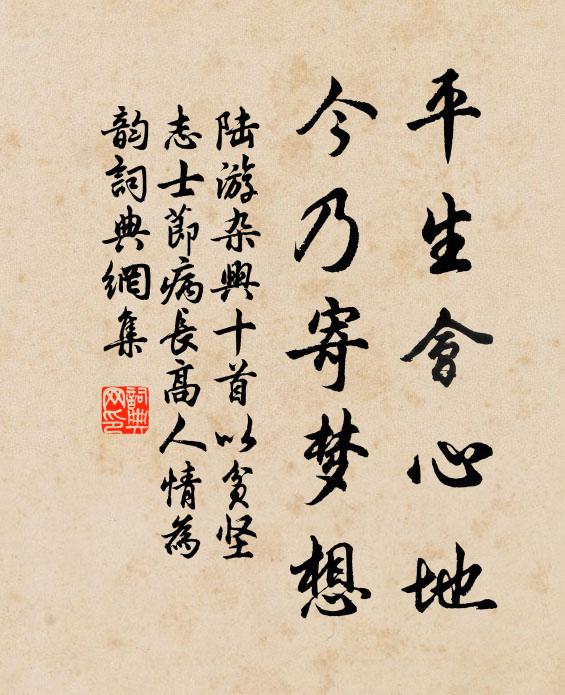 平生會心地
今乃寄梦想
陆游杂興十首以貧坚
志士節病長高人情為
韵詞典網集
詞典
网印